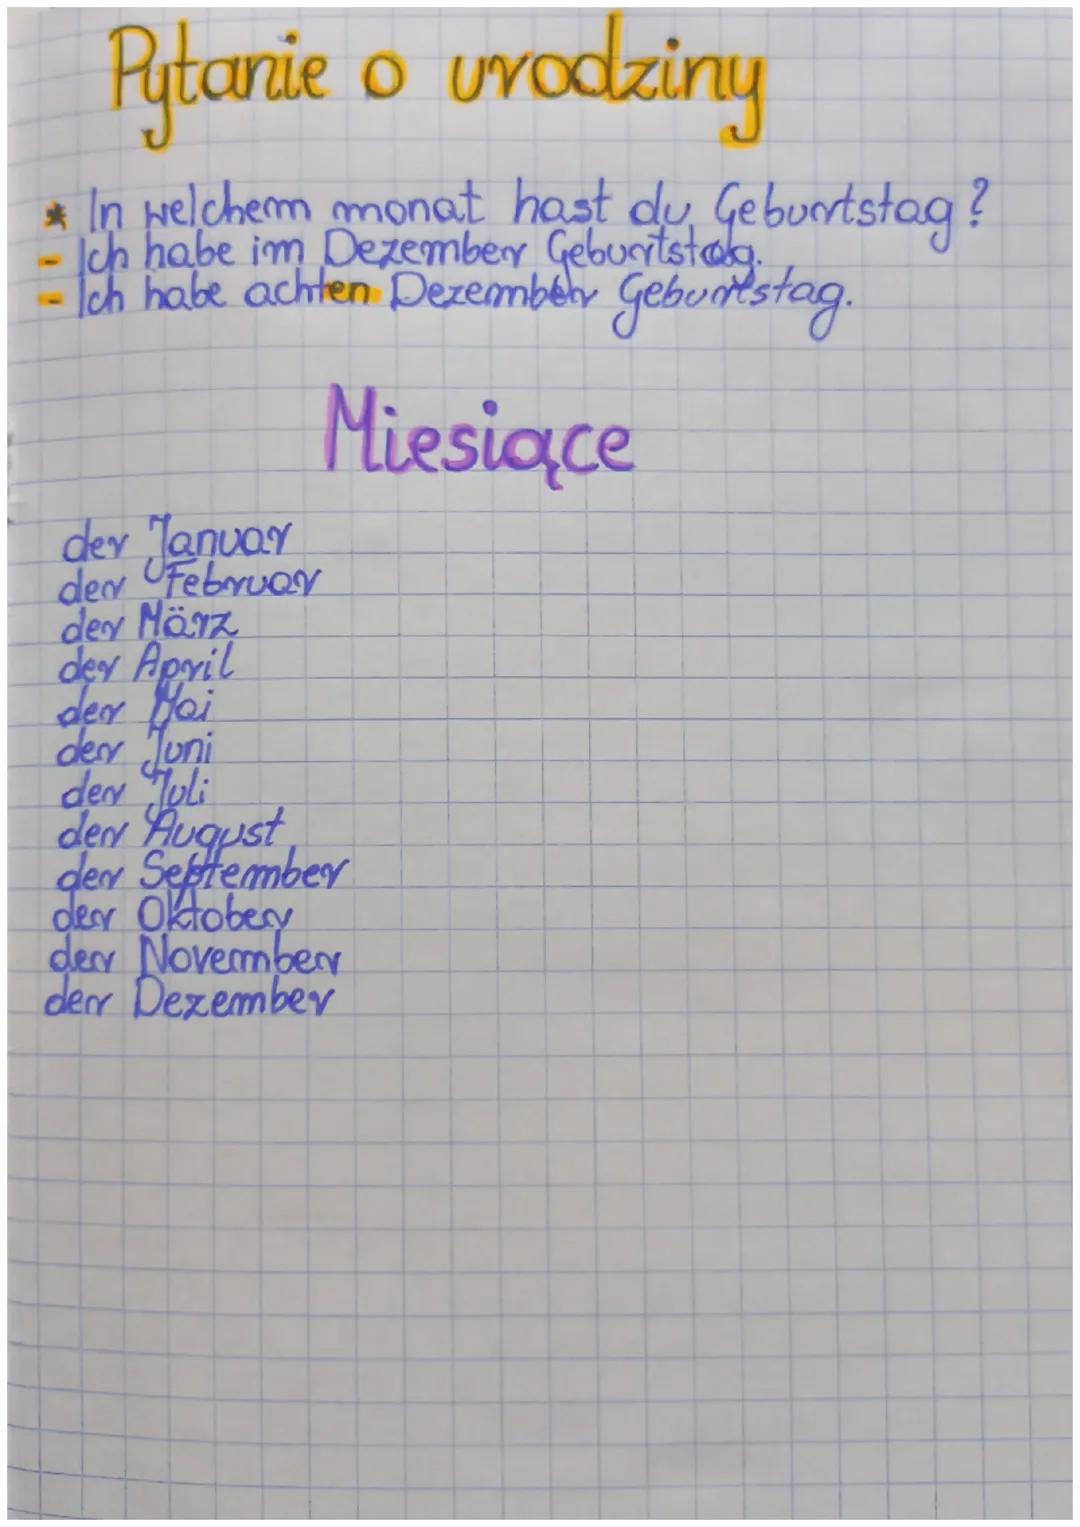 Pytanie o urodziny
* In welchem monat hast du Geburtstag?
- Ich habe im Dezember Geburtstag.
- Ich habe achten Dezember Geburtstag.
Miesiące
der Januar
der Februar
der März
der April
der Mai
der Juni
der Juli
der August
der September
der Oktober
der November
der Dezember